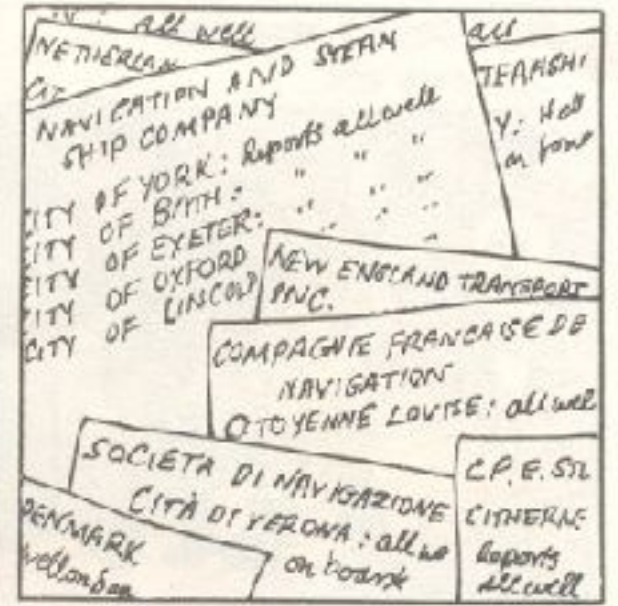 all well
all
NETHERLAN
CIT
NAVIGATION AND STEAM
SHIP COMPANY
CITY OF YORK: Reports all well
CITY OF BATH: " " "
CITY OF EXETER: " " "
CITY OF OXFORD " " "
CITY OF LINCOLN "
TEAMSHI
Y: 
on
NEW ENGLAND TRANSPORT
INC.
COMPAGNIE FRANCAISE DE
NAVIGATION
CITOYENNE LOUISE: all well
SOCIETA DI NAVIGAZIONE
CITÀ DI VERONA: all we
on board
C.P.E. STE
CITHERNE
Reports
all well
DENMARK
well on board